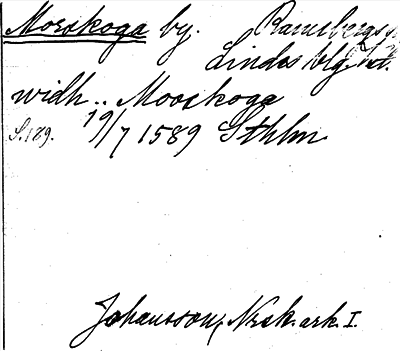 Morskoga by. Ramsbergs
Lindes blg hd.
widh .. Mooskoga
S. 189. 19/7 1589 Sthlm
Johansson, Norsk. ark. I.